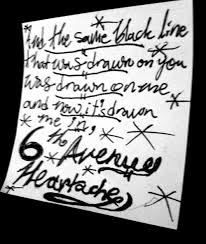 And the same black line
that was drawn on you
was drawn on me
and now it's drawn
me in,
6th Avenue
Heartache